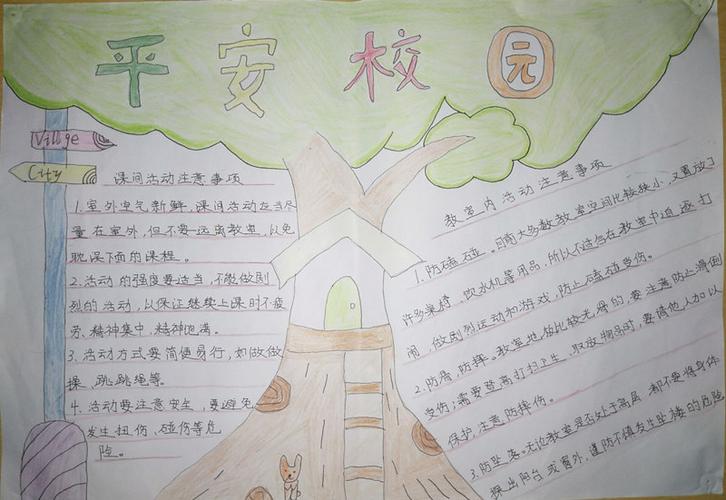 平安校园
Villge
City
课间活动注意事项
1.室外空气新鲜,课间活动应当尽
量在室外,但不要远离教室,以免
耽误下面的课程。
2.活动的强度要适当,不能做剧
烈的活动,以保证继续上课时不疲
劳、精神集中,精神饱满。
3.活动方式要简便易行,如做做
操、跳跳绳等。
4.活动要注意安全,要避免
发生扭伤、碰伤等危
险。
教室内活动注意事项
1.防磕碰。目前大多数教室空间比较狭小,又置放了
许多桌椅、饮水机等用品,所以不适合在教室中追逐打
闹,做剧烈运动和游戏,防止磕碰受伤。
2.防滑、防摔。教室地板比较光滑的,要注意防止滑倒
受伤;需要登高打扫卫生、取放物品时,要请他人加以
保护,注意防摔伤。
3.防坠落。无论教室是否处于高层,都不要将身体
探出阳台或窗外,谨防不慎发生坠楼的危险